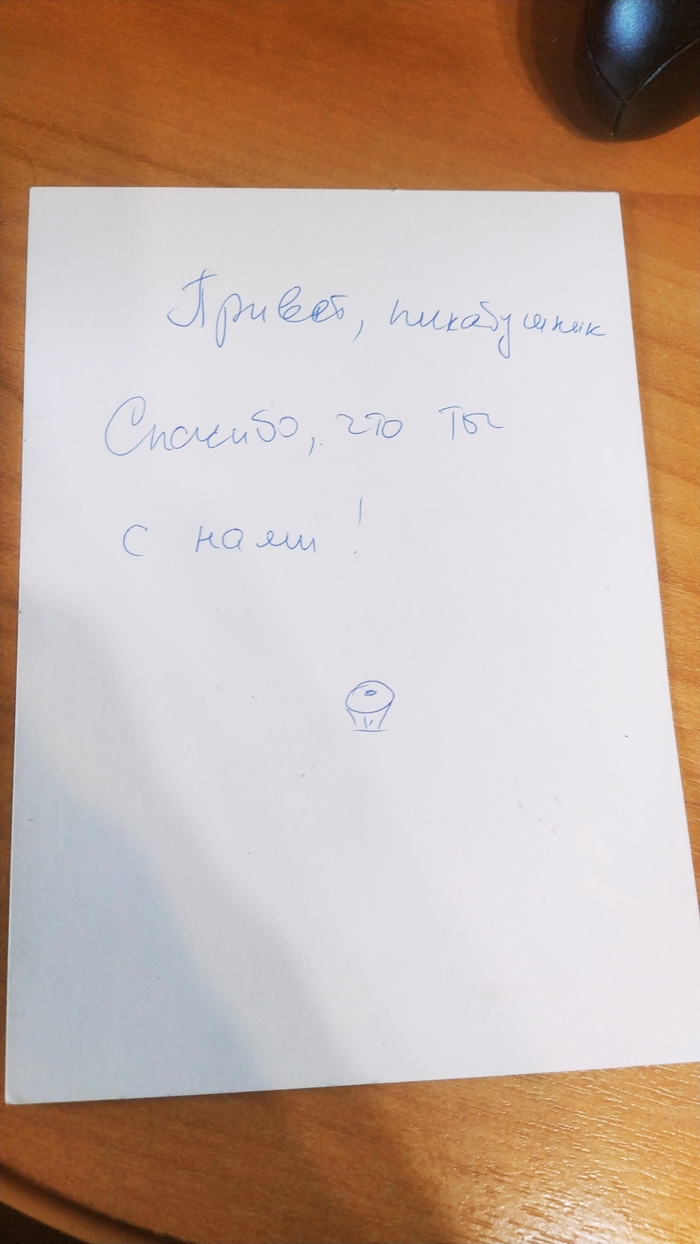 Привет, пикабушник
Спасибо, что ты
с нами!